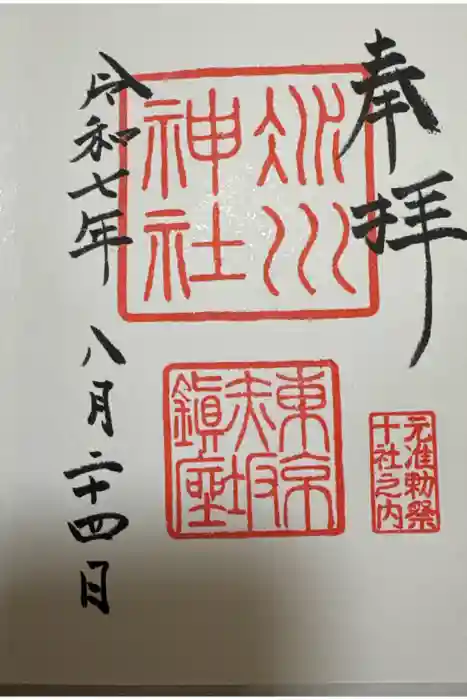 奉拝
氷川
神社
東京
赤坂
鎮座
元准勅祭
十社之内
令和七年 八月二十四日